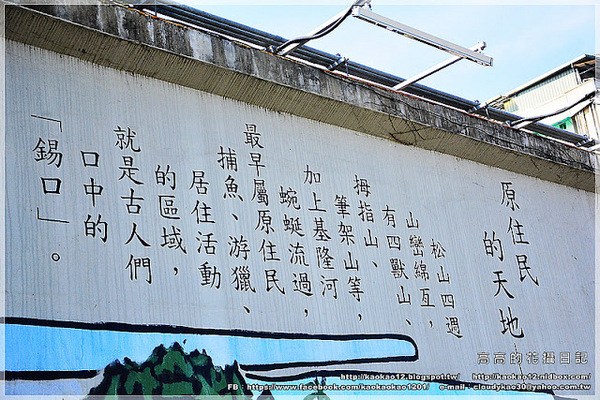 原住民
的天地
松山四週
山巒綿亙，
有四獸山、
拇指山、
筆架山等，
加上基隆河
蜿蜒流過，
最早屬原住民
捕魚、游獵、
居住活動
的區域，
就是古人們
口中的
「錫口」。
高高的拍攝日記
http://kaokao12.blogspot.tw/ http://kaokao12.nidbox.com/
FB：https://www.facebook.com/kaokaokao1201/ e-mail：cloudykao30@yahoo.com.tw